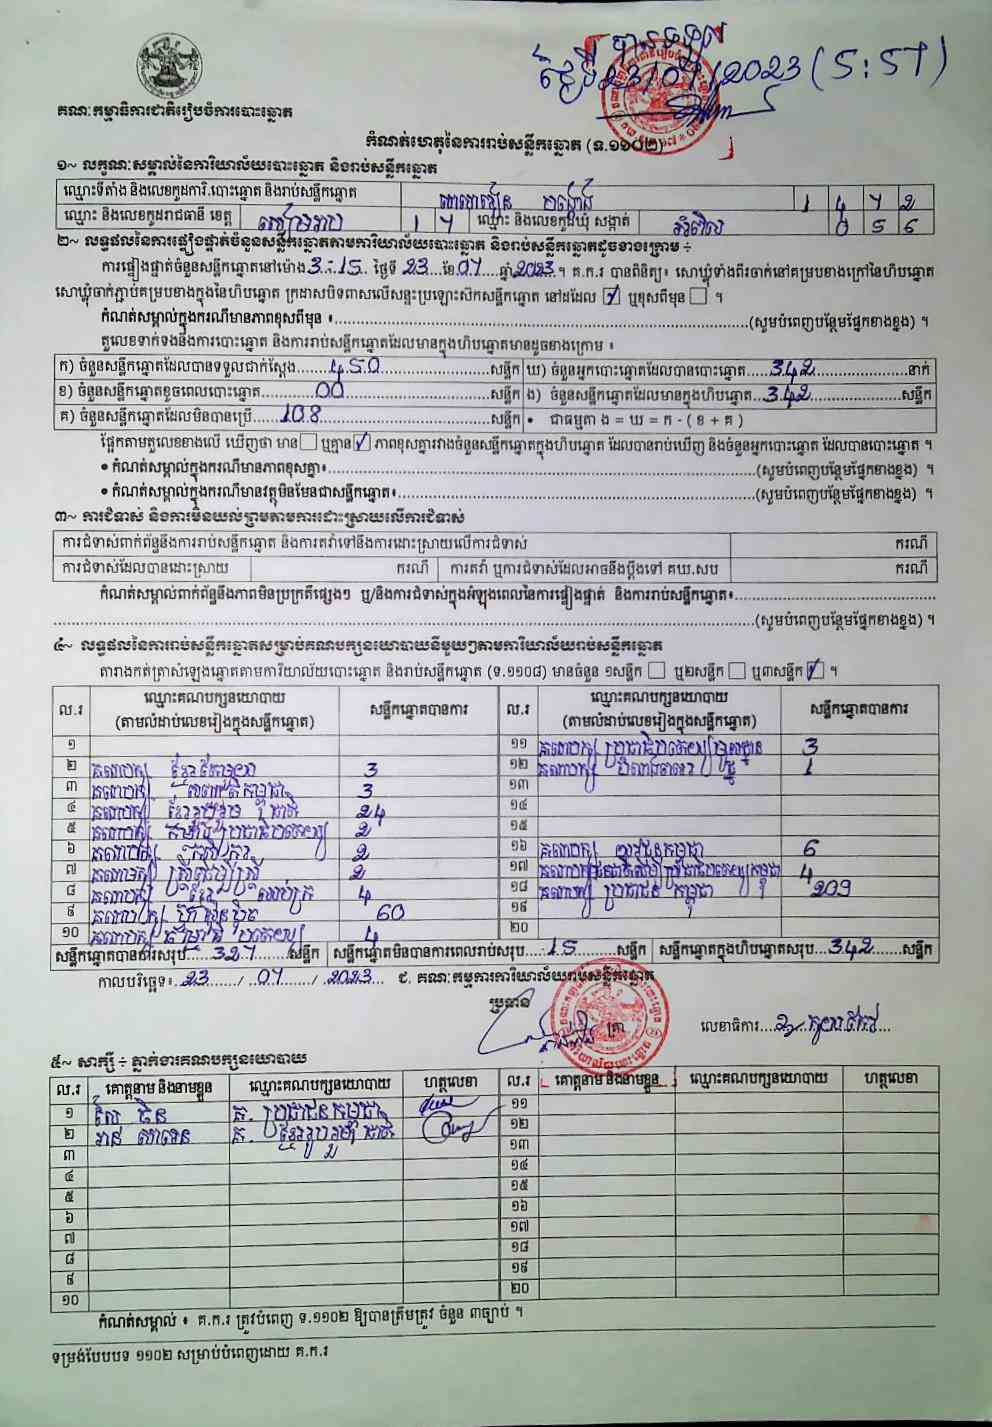 បានទទួល
ថ្ងៃទី 23/07/2023 (5:57)
គណៈកម្មាធិការជាតិរៀបចំការបោះឆ្នោត
កំណត់ហេតុនៃការរាប់សន្លឹកឆ្នោត (ទ.១១០២)
១~ លក្ខណៈសម្គាល់នៃការិយាល័យបោះឆ្នោត និងរាប់សន្លឹកឆ្នោត
ឈ្មោះទីតាំង និងលេខកូដការិ.បោះឆ្នោត និងរាប់សន្លឹកឆ្នោត
ឈ្មោះ និងលេខកូដរាជធានី ខេត្ត សៀមរាប 1 7 ឈ្មោះ និងលេខកូដឃុំ សង្កាត់ អំពិល 0 5 6
២~ លទ្ធផលនៃការផ្ទៀងផ្ទាត់ចំនួនសន្លឹកឆ្នោតតាមការិយាល័យបោះឆ្នោត និងរាប់សន្លឹកឆ្នោតដូចខាងក្រោម ÷
ការផ្ទៀងផ្ទាត់ចំនួនសន្លឹកឆ្នោតនៅម៉ោង 3:15 ថ្ងៃទី 23 ខែ 07 ឆ្នាំ 2023 ។ គ.ក.រ បានពិនិត្យ៖ សោឃ្លុំទាំងពីរចាក់នៅគម្របខាងក្រៅនៃហិបឆ្នោត
សោឃ្លុំចាក់ភ្ជាប់គម្របខាងក្នុងនៃហិបឆ្នោត ក្រដាសបិទពាសលើសន្ទះប្រឡោះស៊កសន្លឹកឆ្នោត នៅដដែល ☑ ឬខុសពីមុន ☐ ។
កំណត់សម្គាល់ក្នុងករណីមានភាពខុសពីមុន ៖ (សូមបំពេញបន្ថែមផ្នែកខាងខ្នង) ។
តួលេខទាក់ទងនឹងការបោះឆ្នោត និងការរាប់សន្លឹកឆ្នោតដែលមានក្នុងហិបឆ្នោតមានដូចខាងក្រោម ៖
ក) ចំនួនសន្លឹកឆ្នោតដែលបានទទួលជាក់ស្ដែង 450 សន្លឹក ឃ) ចំនួនអ្នកបោះឆ្នោតដែលបានបោះឆ្នោត 342 នាក់
ខ) ចំនួនសន្លឹកឆ្នោតខូចពេលបោះឆ្នោត 00 សន្លឹក ង) ចំនួនសន្លឹកឆ្នោតដែលមានក្នុងហិបឆ្នោត 342 សន្លឹក
គ) ចំនួនសន្លឹកឆ្នោតដែលមិនបានប្រើ 108 សន្លឹក • ជាធម្មតា ង = ឃ = ក - ( ខ + គ )
ផ្អែកតាមតួលេខខាងលើ ឃើញថា មាន ☐ ឬគ្មាន ☑ ភាពខុសគ្នារវាងចំនួនសន្លឹកឆ្នោតក្នុងហិបឆ្នោត ដែលបានរាប់ឃើញ និងចំនួនអ្នកបោះឆ្នោត ដែលបានបោះឆ្នោត ។
• កំណត់សម្គាល់ក្នុងករណីមានភាពខុសគ្នា៖ (សូមបំពេញបន្ថែមផ្នែកខាងខ្នង) ។
• កំណត់សម្គាល់ក្នុងករណីមានវត្ថុមិនមែនជាសន្លឹកឆ្នោត៖ (សូមបំពេញបន្ថែមផ្នែកខាងខ្នង) ។
៣~ ការជំទាស់ និងការមិនយល់ព្រមតាមការដោះស្រាយលើការជំទាស់
ការជំទាស់ពាក់ព័ន្ធនឹងការរាប់សន្លឹកឆ្នោត និងការតវ៉ាទៅនឹងការដោះស្រាយលើការជំទាស់ ករណី
ការជំទាស់ដែលបានដោះស្រាយ ករណី ការតវ៉ា ឬការជំទាស់ដែលអាចនឹងប្ដឹងទៅ គឃ.សប ករណី
កំណត់សម្គាល់ពាក់ព័ន្ធនឹងភាពមិនប្រក្រតីផ្សេងៗ ឬ/និងការជំទាស់ក្នុងអំឡុងពេលនៃការផ្ទៀងផ្ទាត់ និងការរាប់សន្លឹកឆ្នោត៖
(សូមបំពេញបន្ថែមផ្នែកខាងខ្នង) ។
៤~ លទ្ធផលនៃការរាប់សន្លឹកឆ្នោតសម្រាប់គណបក្សនយោបាយនីមួយៗតាមការិយាល័យរាប់សន្លឹកឆ្នោត
តារាងកត់ត្រាសំឡេងឆ្នោតតាមការិយាល័យបោះឆ្នោត និងរាប់សន្លឹកឆ្នោត (ទ.១១០៨) មានចំនួន ១សន្លឹក ☐ ឬ២សន្លឹក ☐ ឬ៣សន្លឹក ☑ ។
ល.រ ឈ្មោះគណបក្សនយោបាយ (តាមលំដាប់លេខរៀងក្នុងសន្លឹកឆ្នោត) សន្លឹកឆ្នោតបានការ ល.រ ឈ្មោះគណបក្សនយោបាយ (តាមលំដាប់លេខរៀងក្នុងសន្លឹកឆ្នោត) សន្លឹកឆ្នោតបានការ
១ ១១ គណបក្ស ប្រជាធិបតេយ្យមូលដ្ឋាន 3
២ គណបក្ស ខ្មែរតែមួយ 3 ១២ គណបក្ស 1
៣ គណបក្ស 3 ១៣
៤ គណបក្ស ខ្មែររួបរួមជាតិ 24 ១៤
៥ គណបក្ស កម្លាំងប្រជាធិបតេយ្យ 2 ១៥
៦ គណបក្ស កសិករ 2 ១៦ គណបក្ស យុវជនកម្ពុជា 6
៧ គណបក្ស ស្ត្រីដើម្បីស្ត្រី 2 ១៧ 4
៨ គណបក្ស ខ្មែរ 4 ១៨ គណបក្ស ប្រជាជនកម្ពុជា 209
៩ គណបក្ស ហ្វ៊ុនស៊ិនប៉ិច 60 ១៩
១០ គណបក្ស ធម្មាធិបតេយ្យ 4 ២០
សន្លឹកឆ្នោតបានការសរុប 327 សន្លឹក សន្លឹកឆ្នោតមិនបានការពេលរាប់សរុប 15 សន្លឹក សន្លឹកឆ្នោតក្នុងហិបឆ្នោតសរុប 342 សន្លឹក
កាលបរិច្ឆេទ៖ 23 / 07 / 2023 ជ. គណៈកម្មការការិយាល័យរាប់សន្លឹកឆ្នោត
ប្រធាន
ត្រា លេខាធិការ
៥~ សាក្សី ÷ ភ្នាក់ងារគណបក្សនយោបាយ
ល.រ គោត្តនាម និងនាមខ្លួន ឈ្មោះគណបក្សនយោបាយ ហត្ថលេខា ល.រ គោត្តនាម និងនាមខ្លួន ឈ្មោះគណបក្សនយោបាយ ហត្ថលេខា
១ គ. ប្រជាជនកម្ពុជា ១១
២ គ. ខ្មែររួបរួមជាតិ ១២
៣ ១៣
៤ ១៤
៥ ១៥
៦ ១៦
៧ ១៧
៨ ១៨
៩ ១៩
១០ ២០
កំណត់សម្គាល់ ៖ គ.ក.រ ត្រូវបំពេញ ទ.១១០២ ឱ្យបានត្រឹមត្រូវ ចំនួន ៣ច្បាប់ ។
ទម្រង់បែបបទ ១១០២ សម្រាប់បំពេញដោយ គ.ក.រ